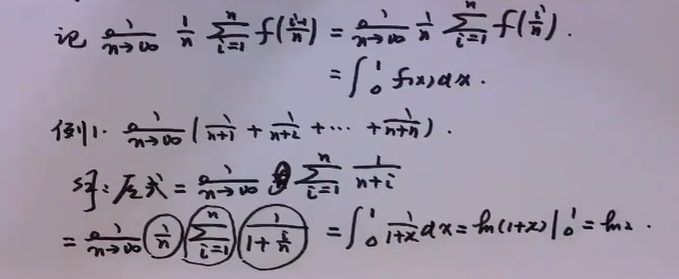 记 lim n→∞ 1/n ∑_{i=1}^{n} f((i-1)/n) = lim n→∞ 1/n ∑_{i=1}^{n} f(i/n).
= ∫_0^1 f(x)dx.
例1. lim n→∞ (1/(n+1) + 1/(n+2) + ··· + 1/(n+n)).
解: 原式 = lim n→∞ ∑_{i=1}^{n} 1/(n+i)
= lim n→∞ 1/n ∑_{i=1}^{n} 1/(1+i/n) = ∫_0^1 1/(1+x) dx = ln(1+x)|_0^1 = ln2.